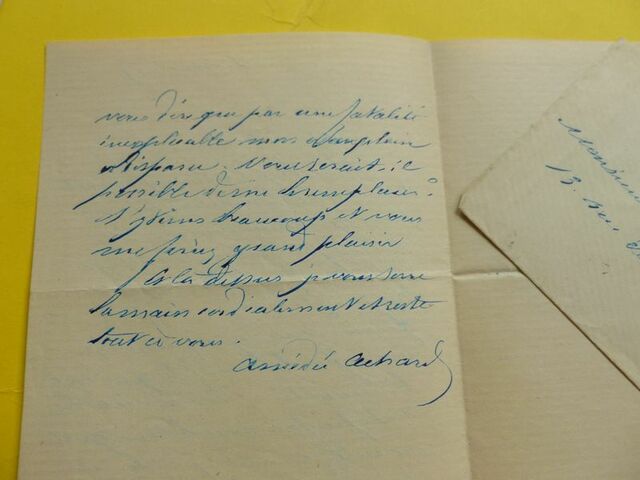 vous dire que par une fatalité
inexplicable mon exemplaire
disparu. Vous serait-il
possible de me le remplacer ?
J'y tiens beaucoup et vous
me ferez grand plaisir
Et là dessus je vous serre
la main cordialement et reste
tout à vous.
Amédée Achard
Monsieur
13, rue